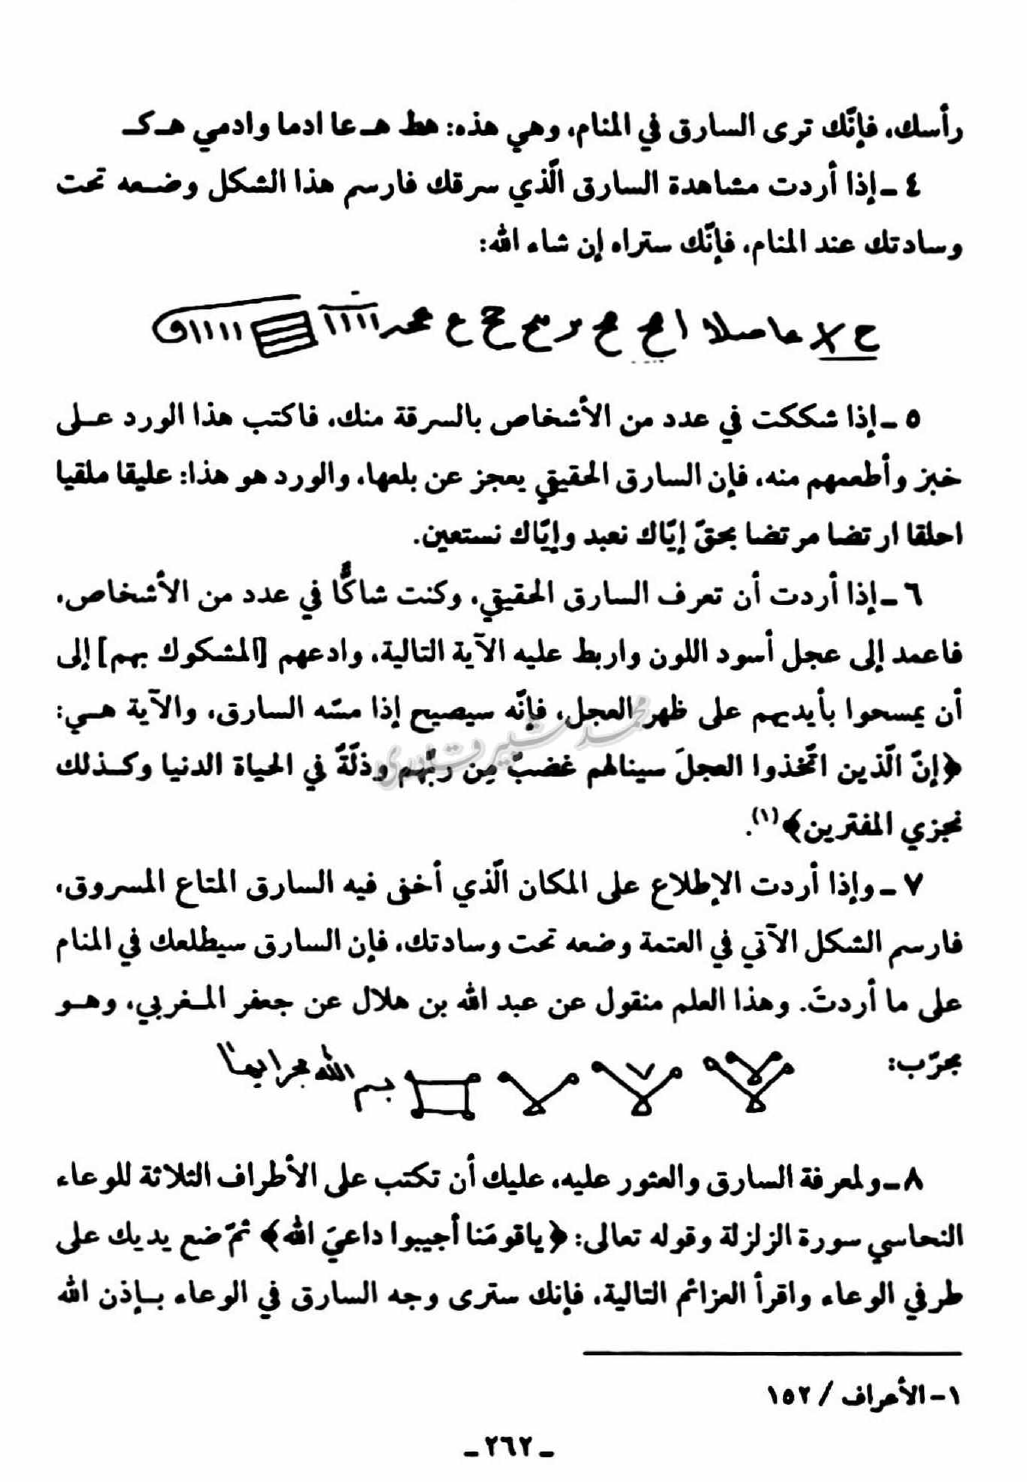 رأسك، فإنّك ترى السارق في المنام، وهي هذه: هط هـ عا ادما وادمي هـ كـ
٤ ـ إذا أردت مشاهدة السارق الّذي سرقك فارسم هذا الشكل وضعه تحت
وسادتك عند المنام، فإنّك ستراه إن شاء الله:
٥ ـ إذا شككت في عدد من الأشخاص بالسرقة منك، فاكتب هذا الورد عـلى
خبز وأطعمهم منه، فإن السارق الحقيقي يعجز عن بلعها، والورد هو هذا: عليقا ملقيا
احلقا ارتضا مرتضا بحقّ إيّاك نعبد وإيّاك نستعين.
٦ ـ إذا أردت أن تعرف السارق الحقيقي، وكنت شاكًّا في عدد من الأشخاص،
فاعمد إلى عجل أسود اللون واربط عليه الآية التالية، وادعهم [المشكوك بهم] إلى
أن يمسحوا بأيديهم على ظهر العجل، فإنّه سيصيح إذا مسّه السارق، والآية هـي:
﴿إنّ الّذين اتّخذوا العجلَ سينالهم غضبٌ مِن ربّهم وذلّةٌ في الحياة الدنيا وكـذلك
نجزي المفترين﴾(١).
٧ ـ وإذا أردت الإطلاع على المكان الّذي أخفى فيه السارق المتاع المسروق،
فارسم الشكل الآتي في العتمة وضعه تحت وسادتك، فإن السارق سيطلعك في المنام
على ما أردتَ. وهذا العلم منقول عن عبد الله بن هلال عن جعفر المـغربي، وهـو
مجرّب:
بسم الله
٨ ـ ولمعرفة السارق والعثور عليه، عليك أن تكتب على الأطراف الثلاثة للوعاء
النحاسي سورة الزلزلة وقوله تعالى: ﴿ياقومَنا أجيبوا داعيَ الله﴾ ثمّ ضع يديك على
طرفي الوعاء واقرأ العزائم التالية، فإنك سترى وجه السارق في الوعاء بـإذن الله
١ - الأعراف / ١٥٢
ـ ٢٦٢ ـ